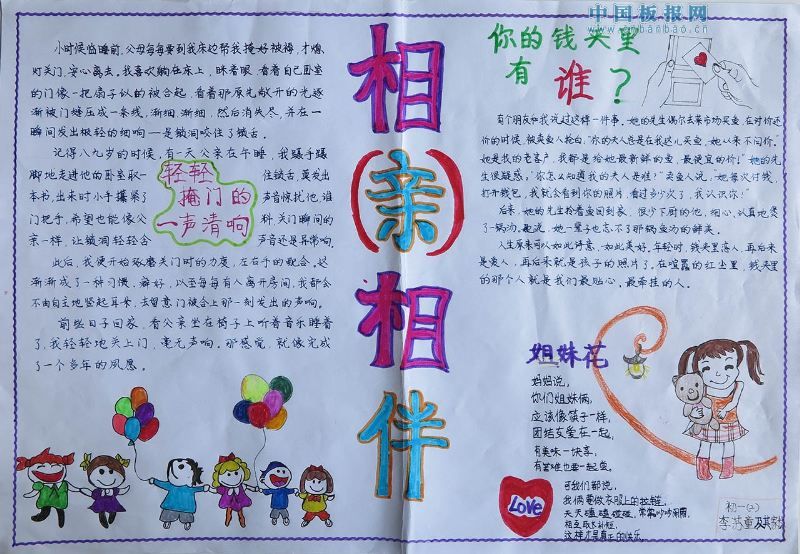 中国板报网
www.cnbanbao.cn
相(亲)相伴
小时候临睡前,父母每每要到我床边帮我掩好被褥,才熄
灯关门,安心离去。我喜欢躺在床上,眯着眼,看着自己卧室
的门像一把扇子似的被合起,看着那原先敞开的光逐
渐被门缝压成一条线,渐细,渐细,然后消失尽,并在一
瞬间发出极轻的细响一是锁洞咬住了锁舌。
记得八九岁的时候,有一天父亲在午睡,我蹑手蹑
脚地走进他的卧室取一
本书,出来时小手攥紧了
门把手,希望也能像父
亲一样,让锁洞轻轻含
轻轻
掩门的
一声清响
住锁舌,莫发出
声音惊扰他,谁
料,关门瞬间的
声音还是异常响。
此后,我便开始琢磨关门时的力度,左右手的配合。这
渐渐成了一种习惯,癖好,以至每每有人离开房间,我都会
不由自主地竖起耳朵,去留意门被合上那一刻发出的声响。
前些日子回家,看父亲坐在椅子上听着音乐睡着
了,我轻轻地关上门,毫无声响。那感觉,就像完成
了一个多年的夙愿。
你的钱夹里
有 谁?
有个朋友和我说过这样一件事。她的先生偶尔去菜市场买鱼,在对价还
价的时候,被卖鱼人抢白:"你的夫人总是在我这儿买鱼,她从来不问价。"
她是我的老客户,我都是给她最新鲜的鱼、最便宜的价!"她的先
生很疑惑:"你怎么知道我的夫人是谁?"卖鱼人说:"她每次付钱
打开钱包,我就会看到你的照片,看过多少次了,我认识你!"
后来,她的先生拎着鱼回到家,很少下厨的他,细心、认真地煲
了一锅汤。她说,她一辈子也忘不了那锅鱼汤的鲜美。
人生原来可以如此诗意,如此美好。年轻时,钱夹里落人,再后来
是爱人,再后来就是孩子的照片了。在喧嚣的红尘里,钱夹里
的那个人就是我们最贴心、最牵挂的人。
姐妹花
妈妈说,
你们姐妹俩,
应该像筷子一样,
团结友爱在一起,
有美味一块尝,
有苦难也要一起受。
可我们都说,
我俩要做衣服上的拉链,
天天磕磕碰碰,常常吵吵闹闹,
相互取长补短,
这样才是真正的快乐。
Love
初一(2)
李芳童及其家长